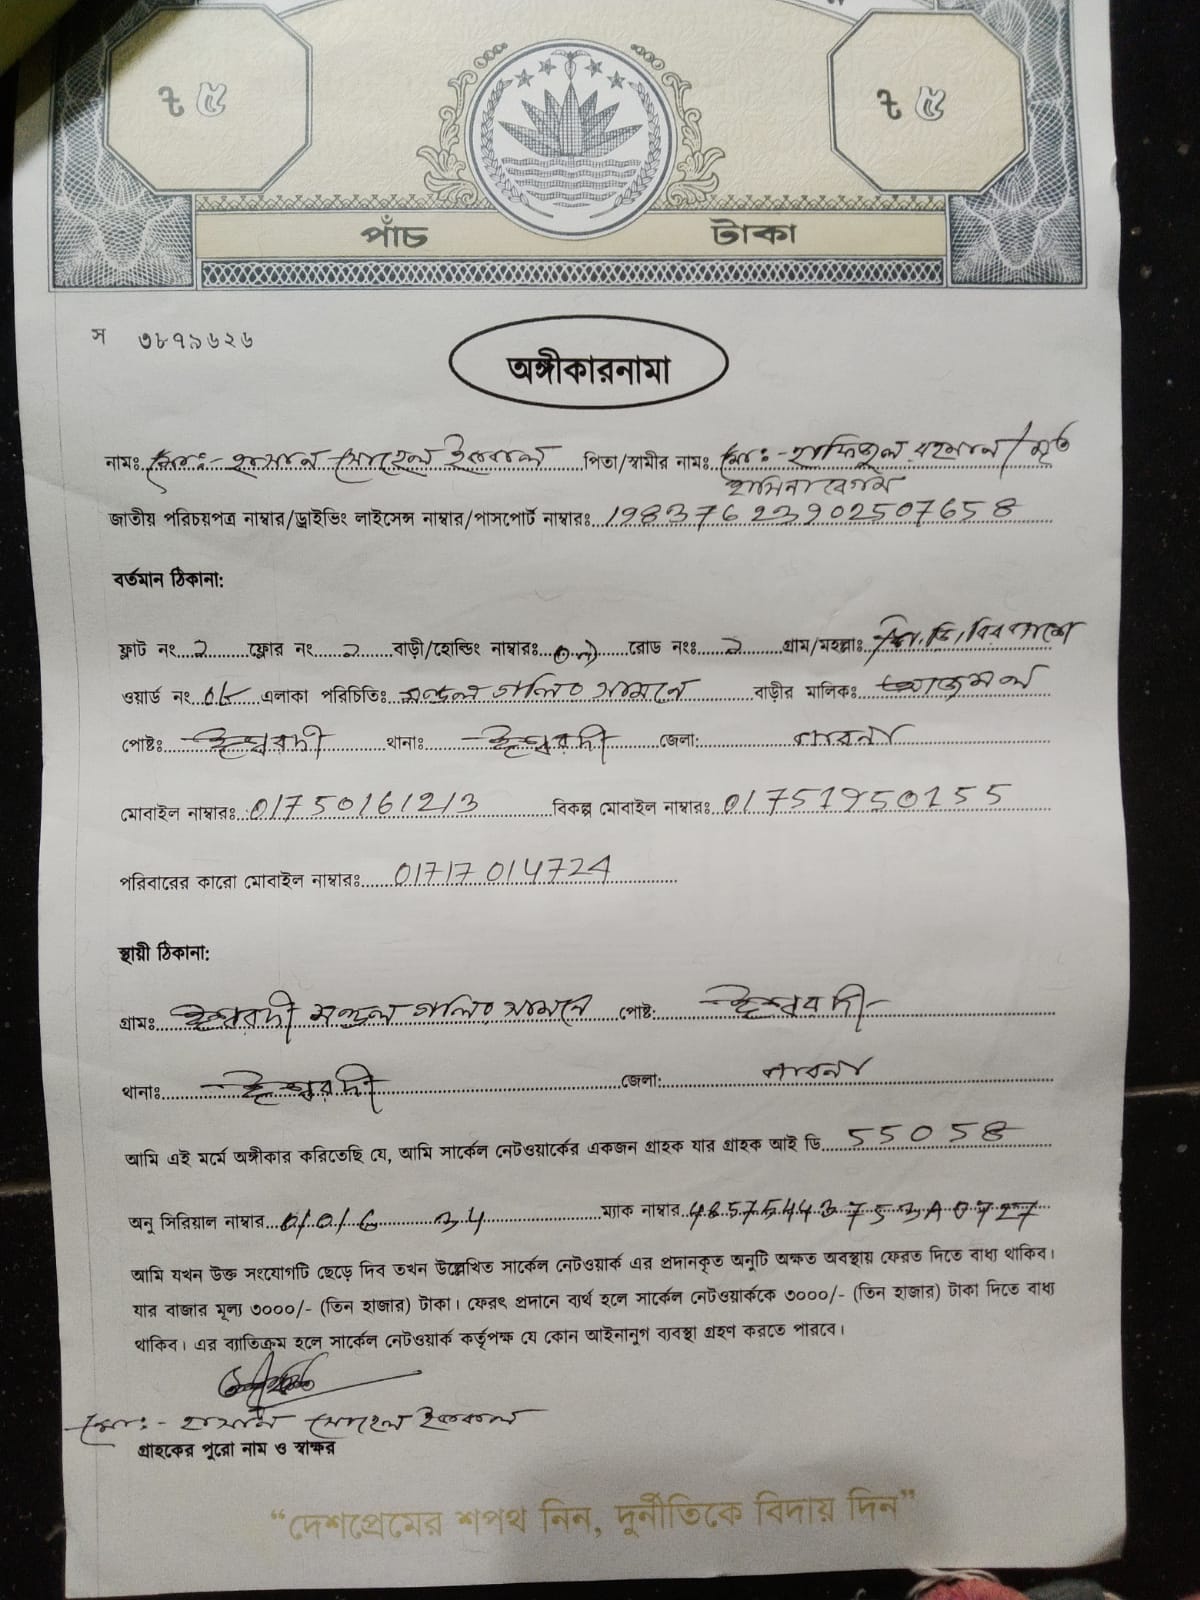 ৳ ৫ ৳ ৫
পাঁচ টাকা
স ৩৮৭৯৬২৬
অঙ্গীকারনামা
নামঃ মোঃ- হাসান সোহেল ইকবাল পিতা/স্বামীর নামঃ মোঃ- হাফিজুল রহমান/মৃত
হাসিনা বেগম
জাতীয় পরিচয়পত্র নাম্বার/ড্রাইভিং লাইসেন্স নাম্বার/পাসপোর্ট নাম্বারঃ 19837623902507658
বর্তমান ঠিকানা:
ফ্লাট নং ২ ফ্লোর নং ২ বাড়ী/হোল্ডিং নাম্বারঃ রোড নংঃ ২ গ্রাম/মহল্লাঃ
ওয়ার্ড নং ০৮ এলাকা পরিচিতিঃ মন্ডল গলির সামনে বাড়ীর মালিকঃ আজমল
পোষ্টঃ ঈশ্বরদী থানাঃ ঈশ্বরদী জেলা: পাবনা
মোবাইল নাম্বারঃ 01750161213 বিকল্প মোবাইল নাম্বারঃ 01751950155
পরিবারের কারো মোবাইল নাম্বারঃ 01717014724
স্থায়ী ঠিকানা:
গ্রামঃ ঈশ্বরদী মন্ডল গলির সামনে পোষ্ট: ঈশ্বরদী
থানাঃ ঈশ্বরদী জেলা: পাবনা
আমি এই মর্মে অঙ্গীকার করিতেছি যে, আমি সার্কেল নেটওয়ার্কের একজন গ্রাহক যার গ্রাহক আই ডি 55058
অনু সিরিয়াল নাম্বার ম্যাক নাম্বার
আমি যখন উক্ত সংযোগটি ছেড়ে দিব তখন উল্লেখিত সার্কেল নেটওয়ার্ক এর প্রদানকৃত অনুটি অক্ষত অবস্থায় ফেরত দিতে বাধ্য থাকিব।
যার বাজার মূল্য ৩০০০/- (তিন হাজার) টাকা। ফেরৎ প্রদানে ব্যর্থ হলে সার্কেল নেটওয়ার্ককে ৩০০০/- (তিন হাজার) টাকা দিতে বাধ্য
থাকিব। এর ব্যাতিক্রম হলে সার্কেল নেটওয়ার্ক কর্তৃপক্ষ যে কোন আইনানুগ ব্যবস্থা গ্রহণ করতে পারবে।
মোঃ- হাসান সোহেল ইকবাল
গ্রাহকের পুরো নাম ও স্বাক্ষর
“দেশপ্রেমের শপথ নিন, দুর্নীতিকে বিদায় দিন”